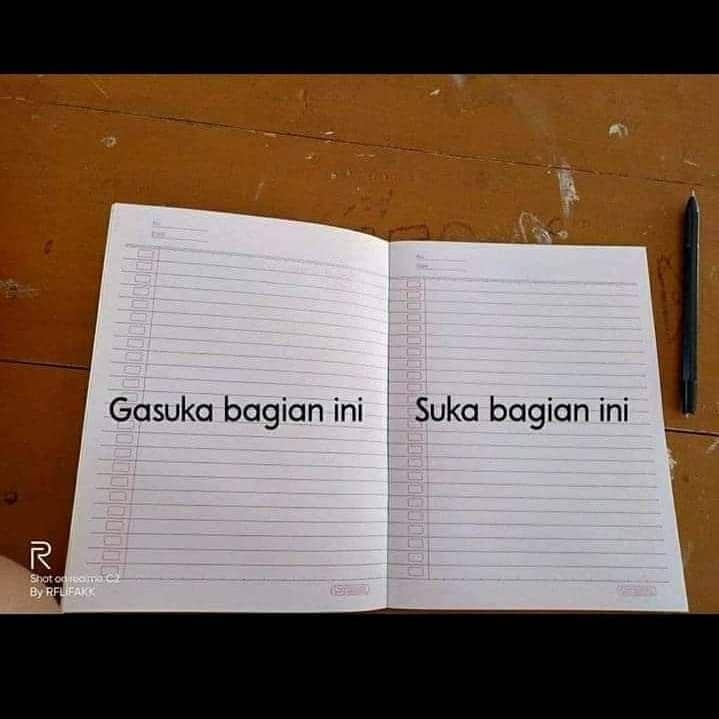 Gasuka bagian ini
Suka bagian ini
R
Shot on realme C2
By RFLIFAKK